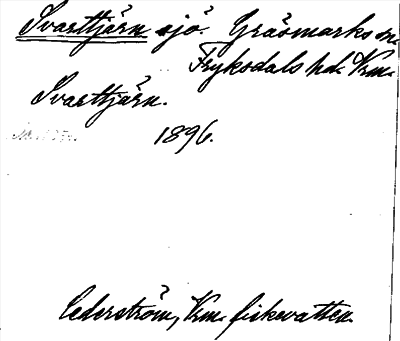 Svarttjärn sjö. Gräsmarks sn.
Fryksdals hd. Vrm.
Svarttjärn.
1896.
Cederström, Vrm. fiskevatten.